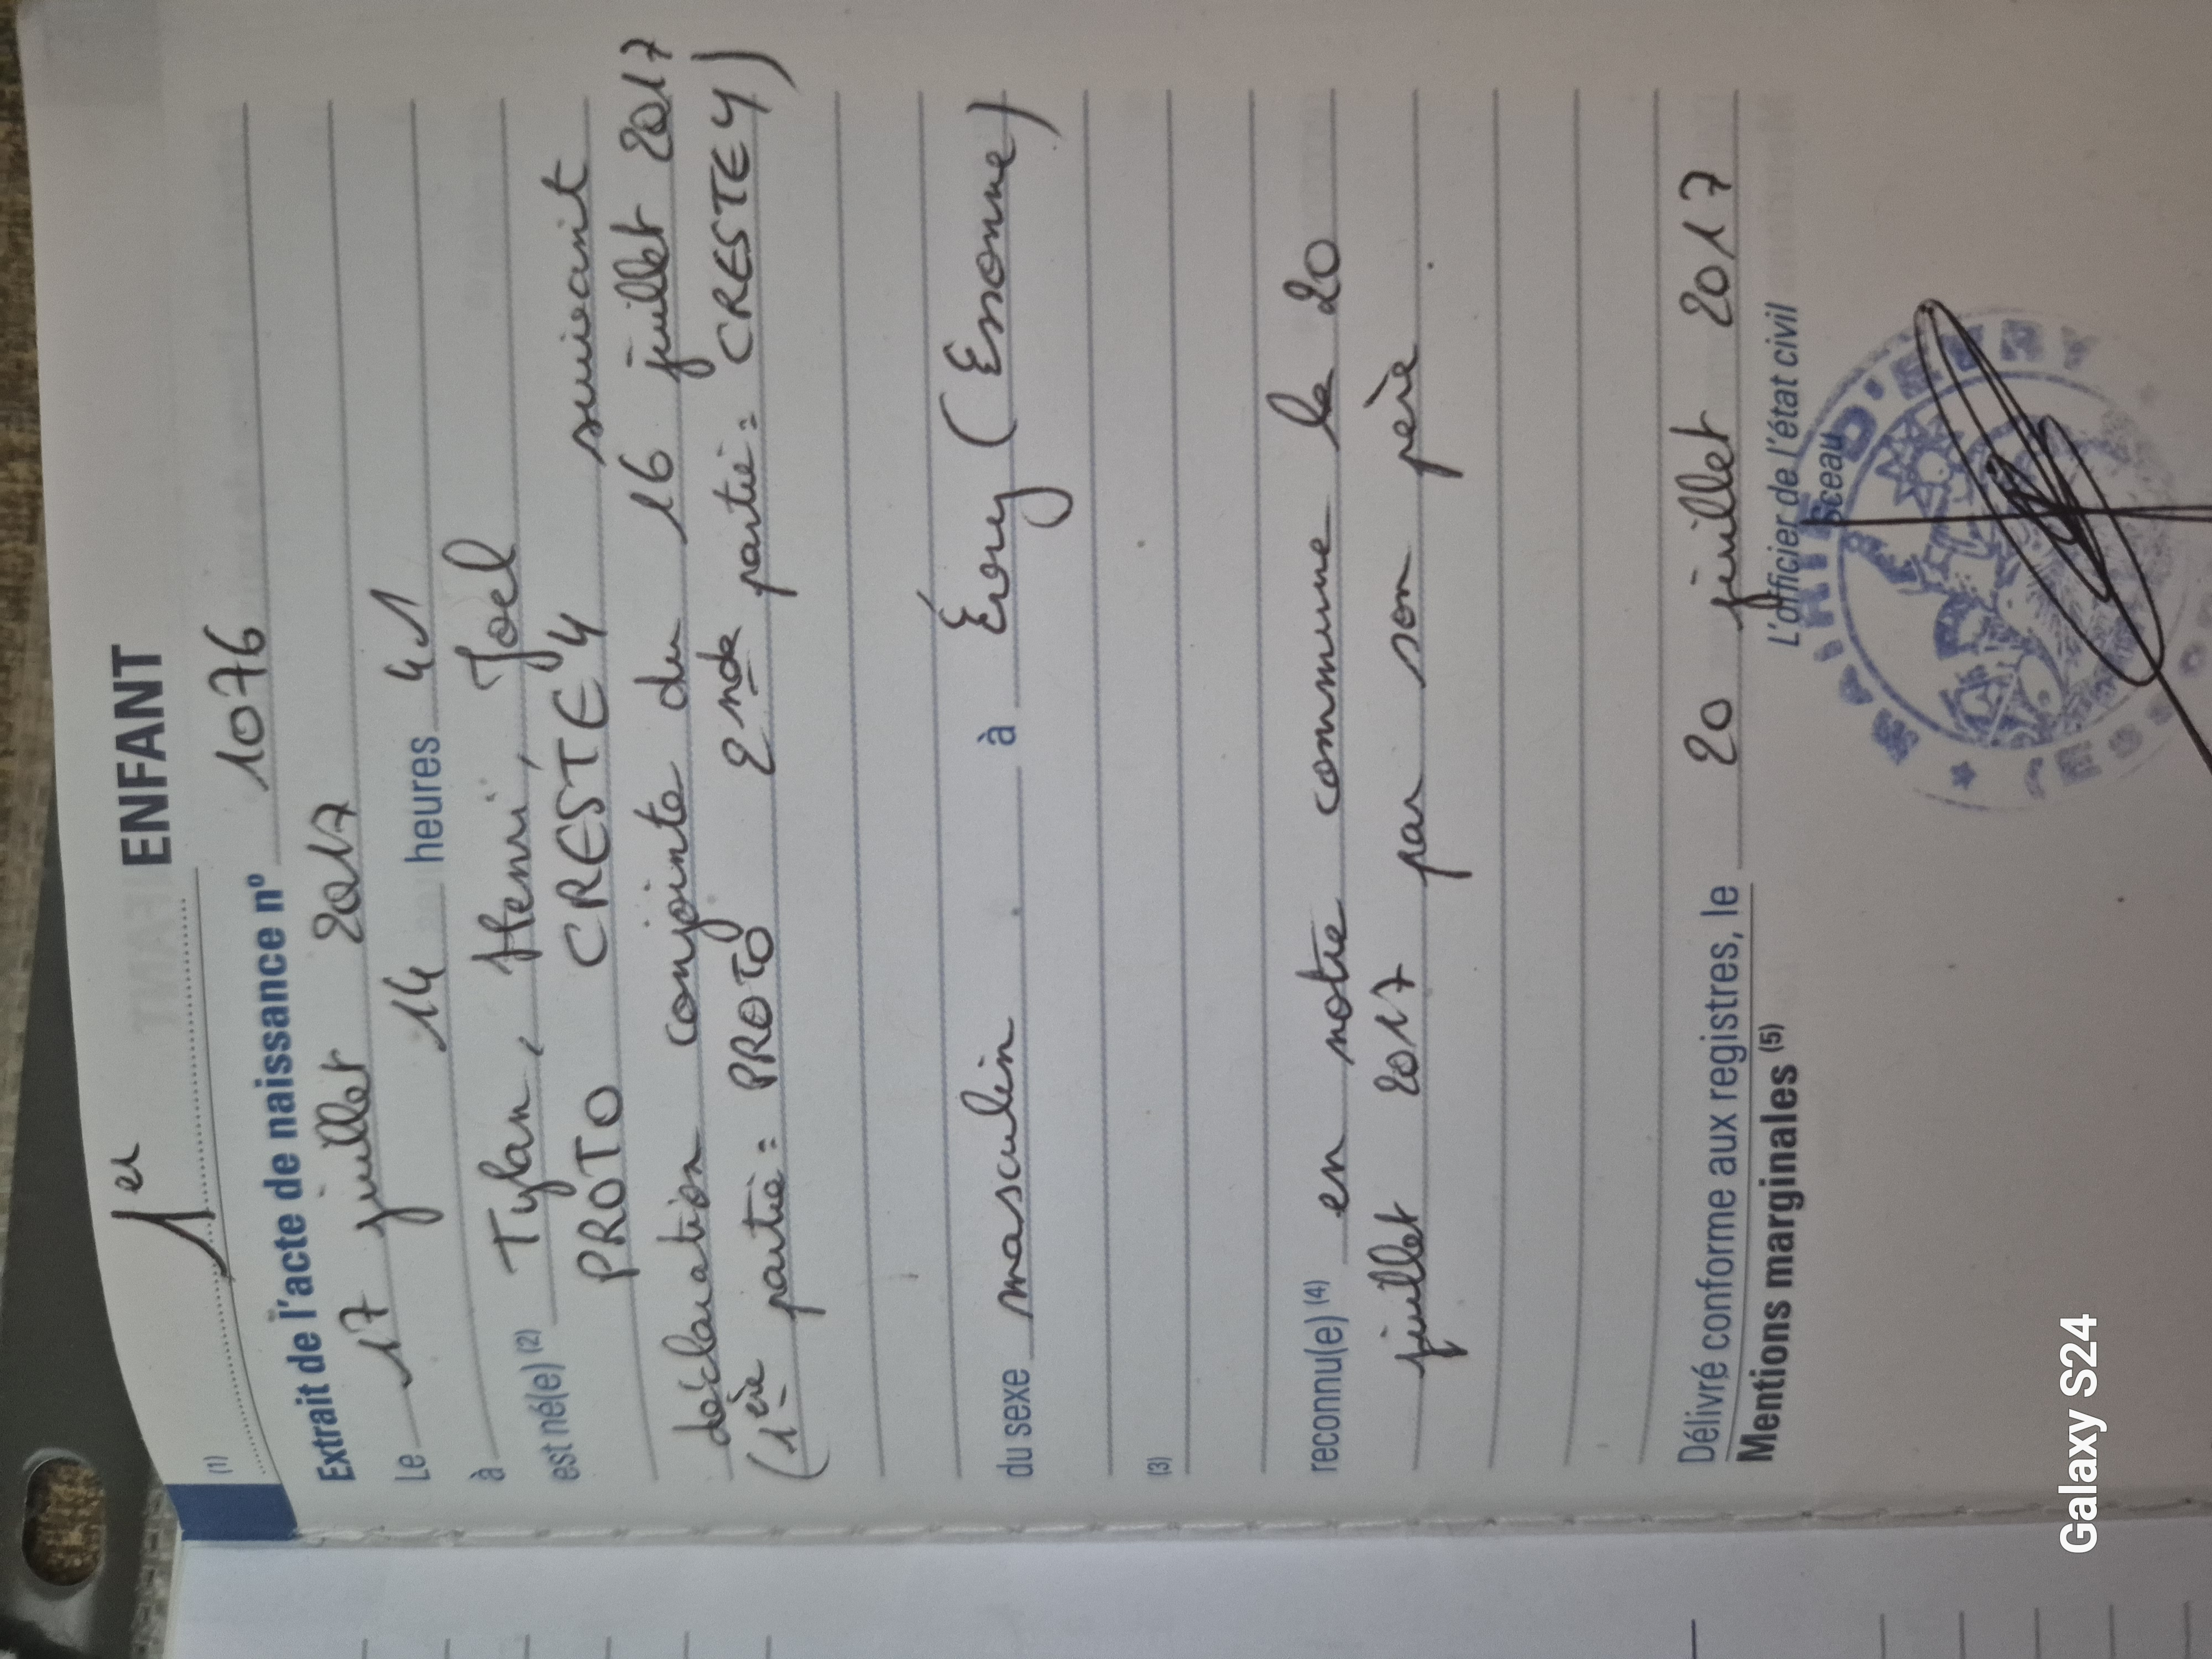 (1) 1er ENFANT
Extrait de l'acte de naissance nº 1076
Le 17 juillet 2017
à 14 heures 41
est né(e) (2) Tylan, Henri, Joel
PROTO CRESTEY suivant
déclaration conjointe du 16 juillet 2017
(1ère partie : PROTO 2nde partie : CRESTEY)
du sexe masculin à Évry (Essonne)
(3)
reconnu(e) (4) en notre commune le 20
juillet 2017 par son père
Délivré conforme aux registres, le 20 juillet 2017
Mentions marginales (5) L'officier de l'état civil
Sceau
MAIRIE D'EVRY
Galaxy S24